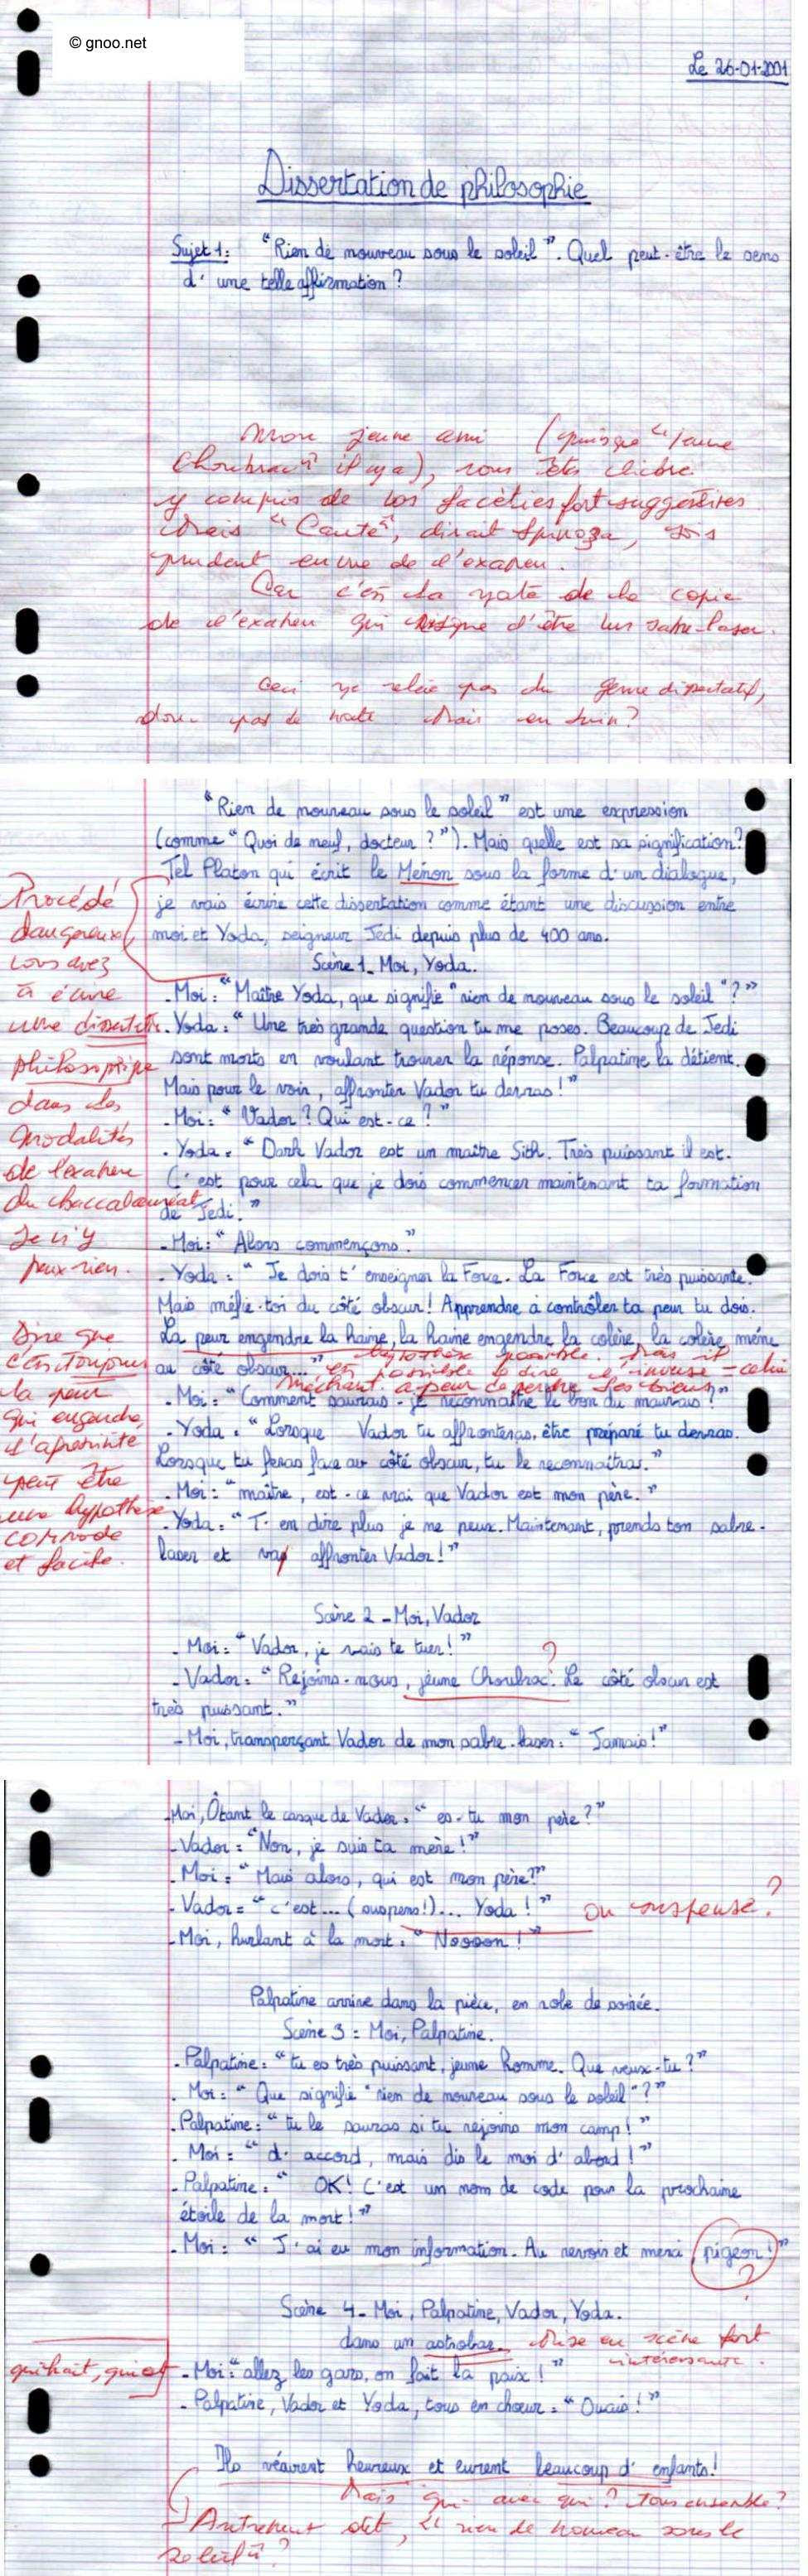 © gnoo.net
Le 26-01-2001
Dissertation de philosophie
Sujet 1: "Rien de nouveau sous le soleil". Quel peut-être le sens
d'une telle affirmation ?
Mon jeune ami (puisque "jeune
Choubrac" il y a), vous êtes libre
y compris de vos facéties fort suggestives
Mais "Caute", disait Spinoza, sois
prudent en vue de l'examen.
Car c'est la note de la copie
de l'examen qui risque d'être un sabre-laser.
Ceci ne relève pas du genre dissertatif,
donc pas de note. Mais en Juin ?
"Rien de nouveau sous le soleil" est une expression
(comme "Quoi de neuf, docteur ?"). Mais quelle est sa signification?
Tel Platon qui écrit le Ménon sous la forme d'un dialogue,
je vais écrire cette dissertation comme étant une discussion entre
moi et Yoda, seigneur Jedi depuis plus de 400 ans.
Procédé
dangereux,
vous avez
à écrire
une dissertation
philosophique
dans les
modalités
de l'examen
du baccalauréat
Je n'y
peux rien.
Scène 1_ Moi, Yoda.
- Moi: "Maître Yoda, que signifie "rien de nouveau sous le soleil"?"
- Yoda: "Une très grande question tu me poses. Beaucoup de Jedi
sont morts en voulant trouver la réponse. Palpatine la détient.
Mais pour le voir, affronter Vador tu devras!"
- Moi: "Vador? Qui est-ce?"
- Yoda: "Dark Vador est un maître Sith. Très puissant il est.
C'est pour cela que je dois commencer maintenant ta formation
de Jedi."
- Moi: "Alors commençons."
- Yoda: "Je dois t'enseigner la Force. La Force est très puissante.
Mais méfie-toi du côté obscur! Apprendre à contrôler ta peur tu dois.
La peur engendre la haine, la haine engendre la colère, la colère mène
au côté obscur..."
hypothèse possible. Mais il
est possible de dire l'inverse = celui
méchant a peur de perdre ses biens
Dire que
c'est toujours
la peur
qui engendre
l'agressivité
peut être
une hypothèse
commode
et facile.
- Moi: "Comment saurais-je reconnaître le bon du mauvais?"
- Yoda: "Lorsque Vador tu affronteras, être préparé tu devras.
Lorsque tu feras face au côté obscur, tu le reconnaîtras."
- Moi: "maître, est-ce vrai que Vador est mon père."
- Yoda: "T'en dire plus je ne peux. Maintenant, prends ton sabre-
laser et vas affronter Vador!"
Scène 2 - Moi, Vador
- Moi: "Vador, je vais te tuer!"
?
- Vador: "Rejoins-nous, jeune Choubrac. Le côté obscur est
très puissant."
- Moi, transperçant Vador de mon sabre-laser: "Jamais!"
- Moi, Ôtant le casque de Vador: "es-tu mon père?"
- Vador: "Non, je suis ta mère!"
- Moi: "Mais alors, qui est mon père?"
- Vador: "c'est... (suspens!)... Yoda!"
ou suspense?
- Moi, hurlant à la mort: "Nooon!"
Palpatine arrive dans la pièce, en robe de soirée.
Scène 3: Moi, Palpatine.
- Palpatine: "tu es très puissant, jeune homme. Que veux-tu?"
- Moi: "Que signifie "rien de nouveau sous le soleil"?"
- Palpatine: "tu le sauras si tu rejoins mon camp!"
- Moi: "d'accord, mais dis le moi d'abord!"
- Palpatine: "OK! C'est un nom de code pour la prochaine
étoile de la mort!"
- Moi: "J'ai eu mon information. Au revoir et merci, pigeon!"
?
Scène 4 - Moi, Palpatine, Vador, Yoda.
dans un astrobar.
Mise en scène fort
intéressante.
- Moi: "allez les gars, on fait la paix!"
- Palpatine, Vador et Yoda, tous en chœur: "Ouais!"
Ils vécurent heureux et eurent beaucoup d'enfants!
Mais qui avec qui? Tous ensemble?
Autrement dit, rien de nouveau sous le
soleil?